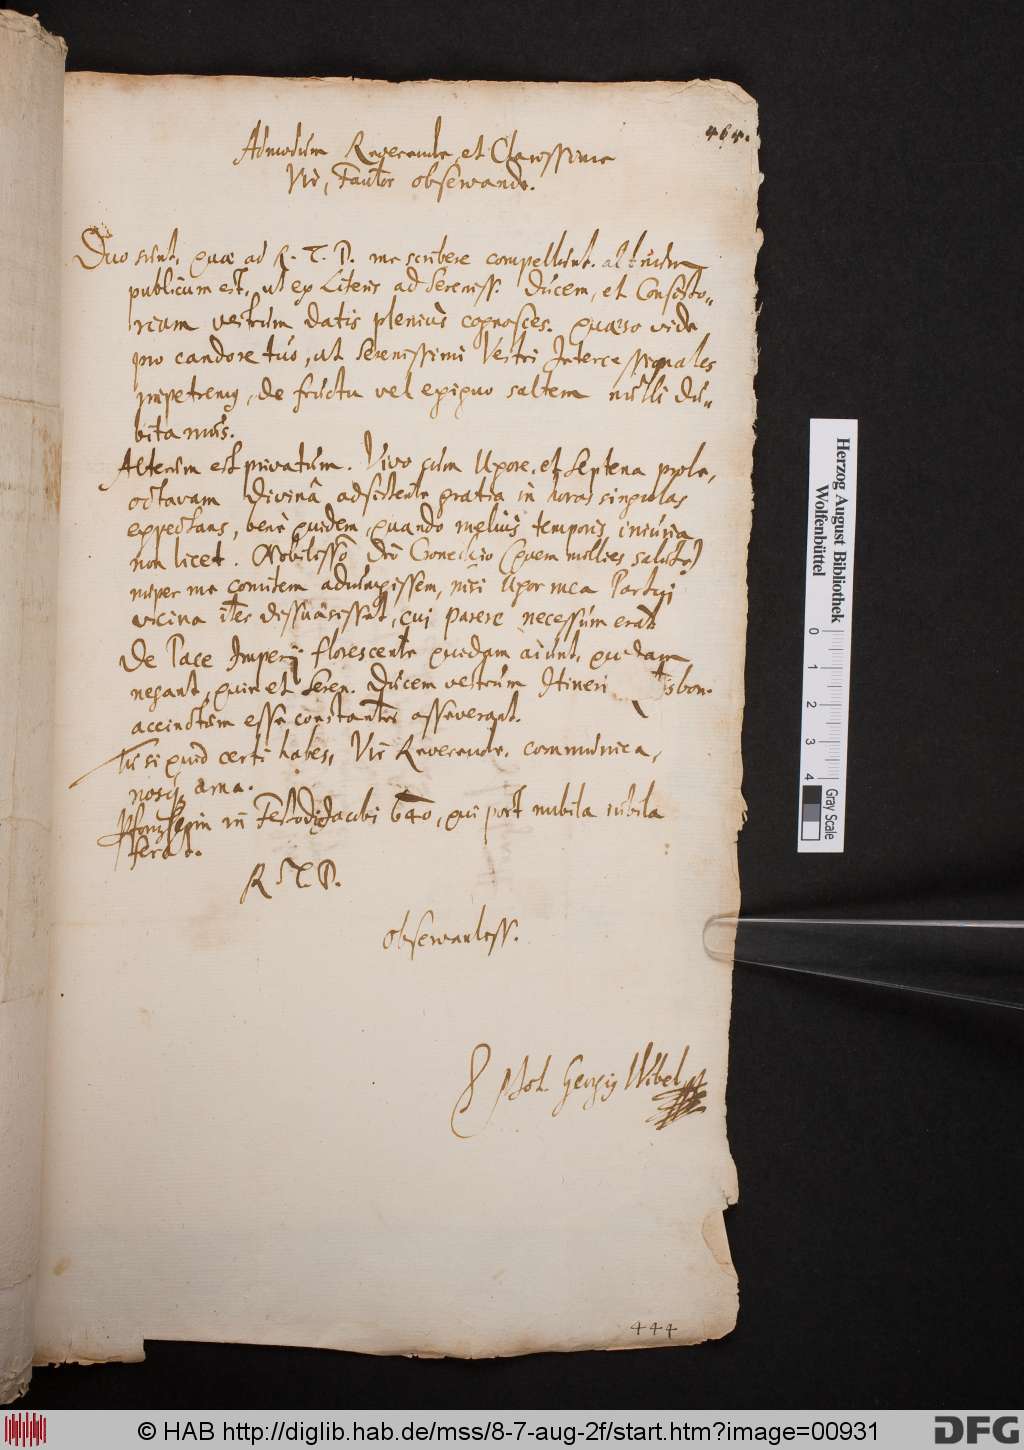 464.
Admodum Reverende et Clarissime
Vir, Fautor observande.
Duo sunt, quae ad R. T. D. me scribere compellunt. alterum
publicum est, ut ex Literis ad Sereniss. Ducem, et Consisto-
rium vestrum datis plenius cognosces. quaeso vide
pro candore tuo, ut Serenissimi Vestri Intercessionales
impetremus, de fructu vel exiguo saltem nulli du-
bitamus.
Alterum est privatum. Vivo cum Uxore, et septena prole,
octavam divinâ adsistente gratia in horas singulas
expectans, benè quidem, quando melius temporis iniuria
non licet. Nobilisso Dn
(quem millies saluto)
nuper me comitem adiunxissem, nisi Uxor mea Partui
vicina iter dissuasisset, cui parere necessum erat.
De Pace Imperij florescente quidam aiunt, quidam
negant, quin et Seren. Ducem vestrum Itineri
accinctum esse constanter asseverant.
Tu si quid certi habes, Vir Reverende, communica,
nosq. ama.
in Festo D. Jacobi 640, qui post nubila iubila
ferat.
R. T. D.
observantiss.
Joh. Georgij Wibel
444
Herzog August Bibliothek
Wolfenbüttel
0 1 2 3 4
Gray Scale
© HAB http://diglib.hab.de/mss/8-7-aug-2f/start.htm?image=00931
DFG